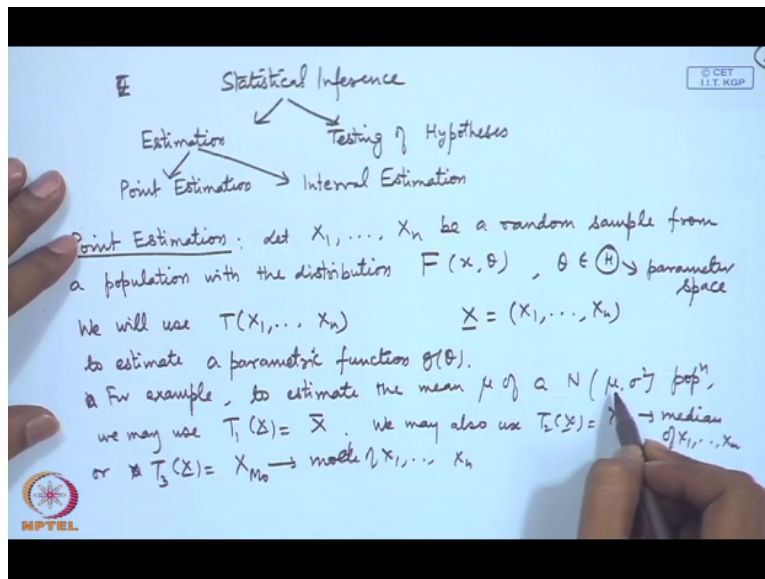 Statistical Inference
© CET
I.I.T. KGP
Estimation Testing of Hypotheses
Point Estimation Interval Estimation
Point Estimation : Let X₁, ..., Xₙ be a random sample from
a population with the distribution F(x, θ), θ ∈ Ⓗ → parameter
space
We will use T(X₁, ... Xₙ) X = (X₁, ..., Xₙ)
to estimate a parametric function g(θ).
For example, to estimate the mean μ of a N(μ, σ²) popⁿ,
we may use T₁(X) = X̄. We may also use T₂(X) = → median
of X₁, .., Xₙ
or T₃(X) = X_Mo → mode of X₁, ... Xₙ
NPTEL